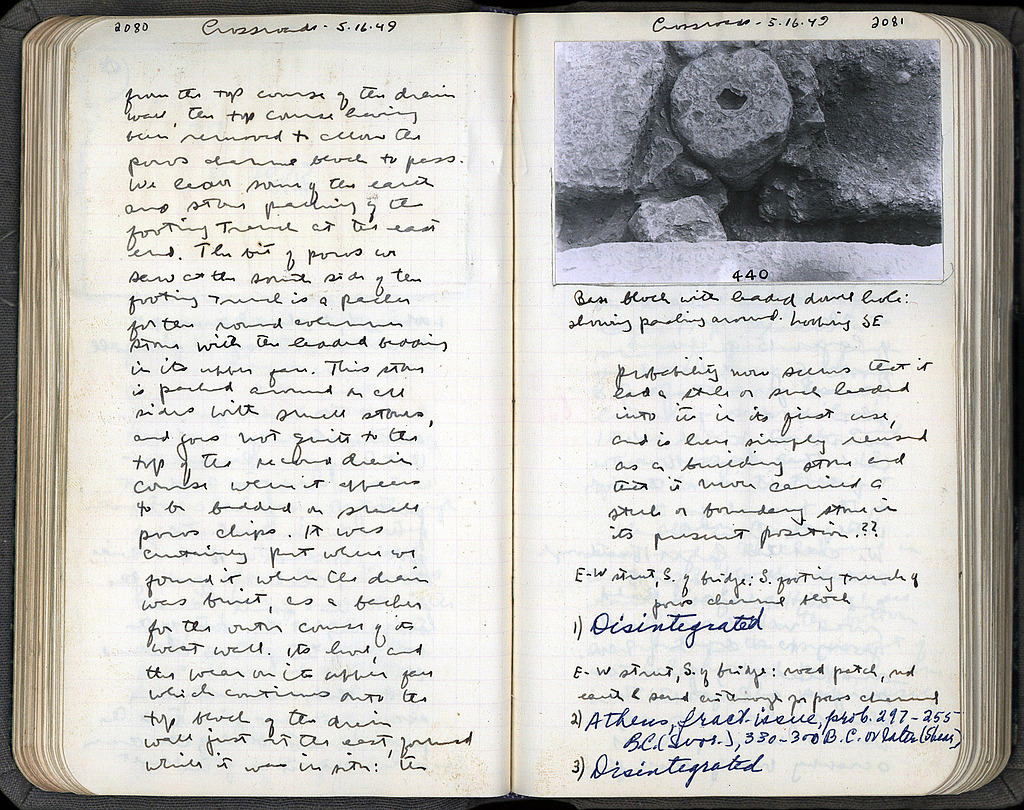 2080
Crossroads - 5.16.49
from the top course of the drain
wall, the top course having
been removed to allow the
poros channel block to pass.
We leave some of the earth
and stone packing of the
footing trench at the east
end. The bit of poros we
saw at the south side of the
footing trench is a
for the round column
stone with the leaded
in its upper face. This stone
is packed around on all
sides with small stones,
and goes not quite to the
top of the second drain
course where it appears
to be bedded on small
poros chips. It was
certainly put where we
found it when the drain
was built, as a backer
for the outer course of its
west wall. Its level, and
the wear on its upper face
which continues onto the
top block of the drain
wall just at the east,
while it was in situ: the
Crossroads - 5.16.49
2081
440
Base block with leaded dowel hole:
showing packing around. Looking SE
probability now seems that it
had a stele or such leaded
into it in its first use,
and is here simply reused
as a building stone and
that it never carried a
stele or boundary stone in
its present position.??
E-W street, S. of bridge: S. footing trench of
poros channel block
1) Disintegrated
E-W street, S. of bridge: road patch, red
earth & sand for poros channel
2) Athens, fract. issue, prob. 297-255
BC. (Svor.), 330-300 B.C. or later (Shear)
3) Disintegrated